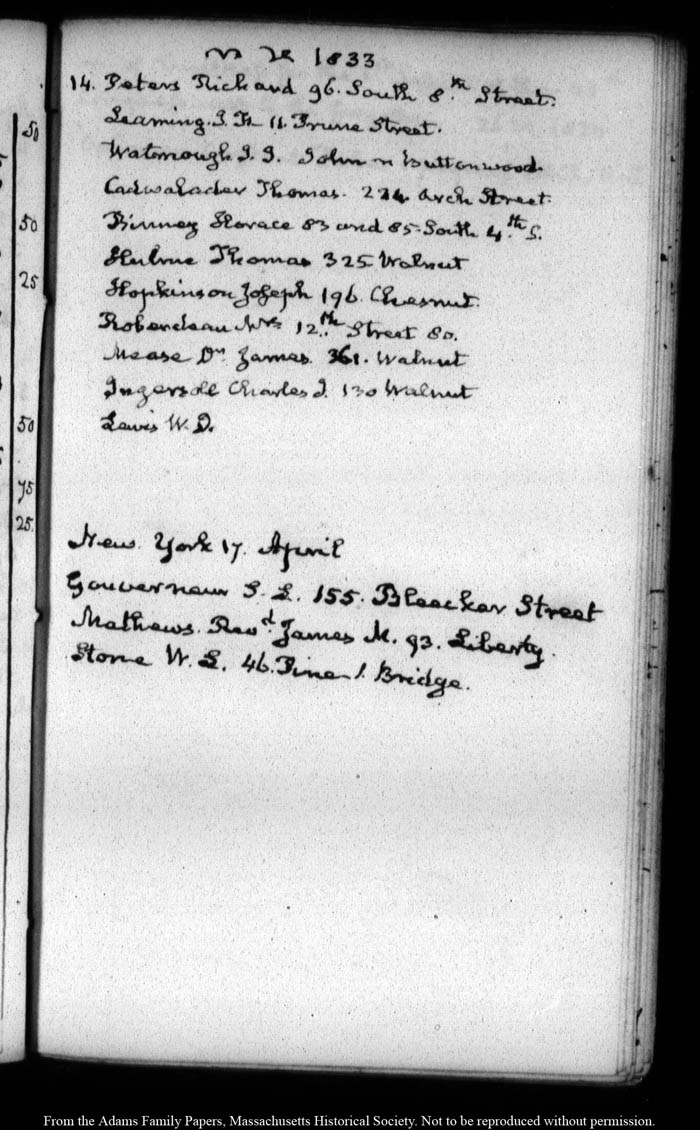 1833
14. Peters Richard 96. South 8.th Street.
Leaming. J. Fr 11. Prune Street.
Watmough J. G. John n Buttonwood.
Cadwalader Thomas. 224 Arch Street.
Binney Horace 83 and 85. South 4.th S.
Hulme Thomas 325 Walnut
Hopkinson Joseph 196. Chesnut.
Roberdeau Mrs 12.th Street 80.
Mease Dr. James. 361. Walnut
Ingersoll Charles J. 130 Walnut
Lewis W. D.
New. York 17. April
Gouverneur S. L. 155. Bleecker Street
Mathews. Revd. James M. 93. Liberty.
Stone W. L. 46. Pine 1. Bridge.
50
50
25
50
75
25.
From the Adams Family Papers, Massachusetts Historical Society. Not to be reproduced without permission.